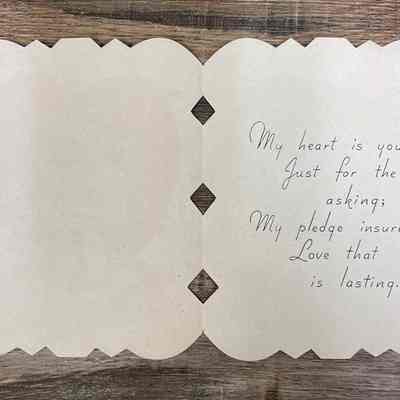 My heart is you
Just for the
asking;
My pledge insur
Love that
is lasting.